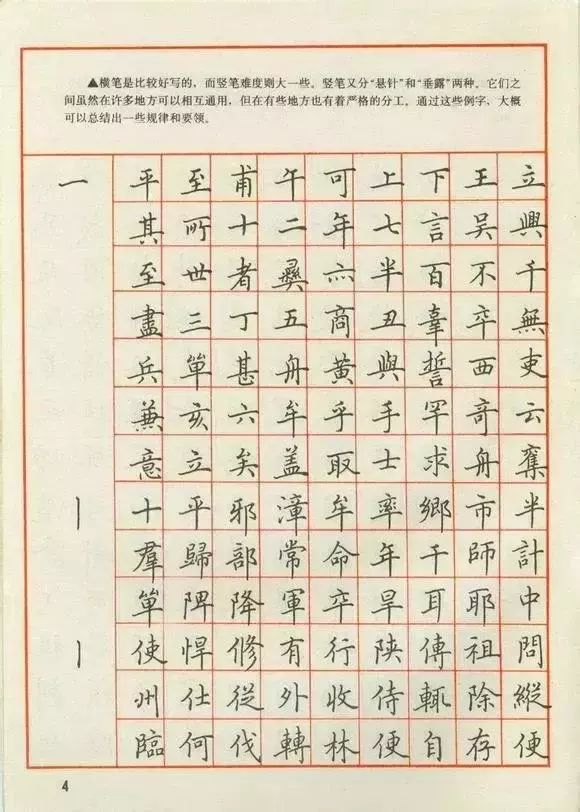 ▲横笔是比较好写的，而竖笔难度则大一些。竖笔又分“悬针”和“垂露”两种。它们之
间虽然在许多地方可以相互通用，但在有些地方也有着严格的分工。通过这些例字，大概
可以总结出一些规律和要领。
一 平至甫午可上下王立
其所十二年七言吴興
至世者彝六半百不千
盡三丁五商丑辜卒無
兵單甚舟黄與誓西吏
兼亥六牟乎手罕奇云
意立矣盖取士求舟奪
丨 十平邪漳牟率鄉市半
羣歸部常命年干師計
單陴降軍卒旱耳耶中
丨 使悍修有行陕傳祖問
州仕從外收侍輒除縱
臨何伐轉林便自存便
4